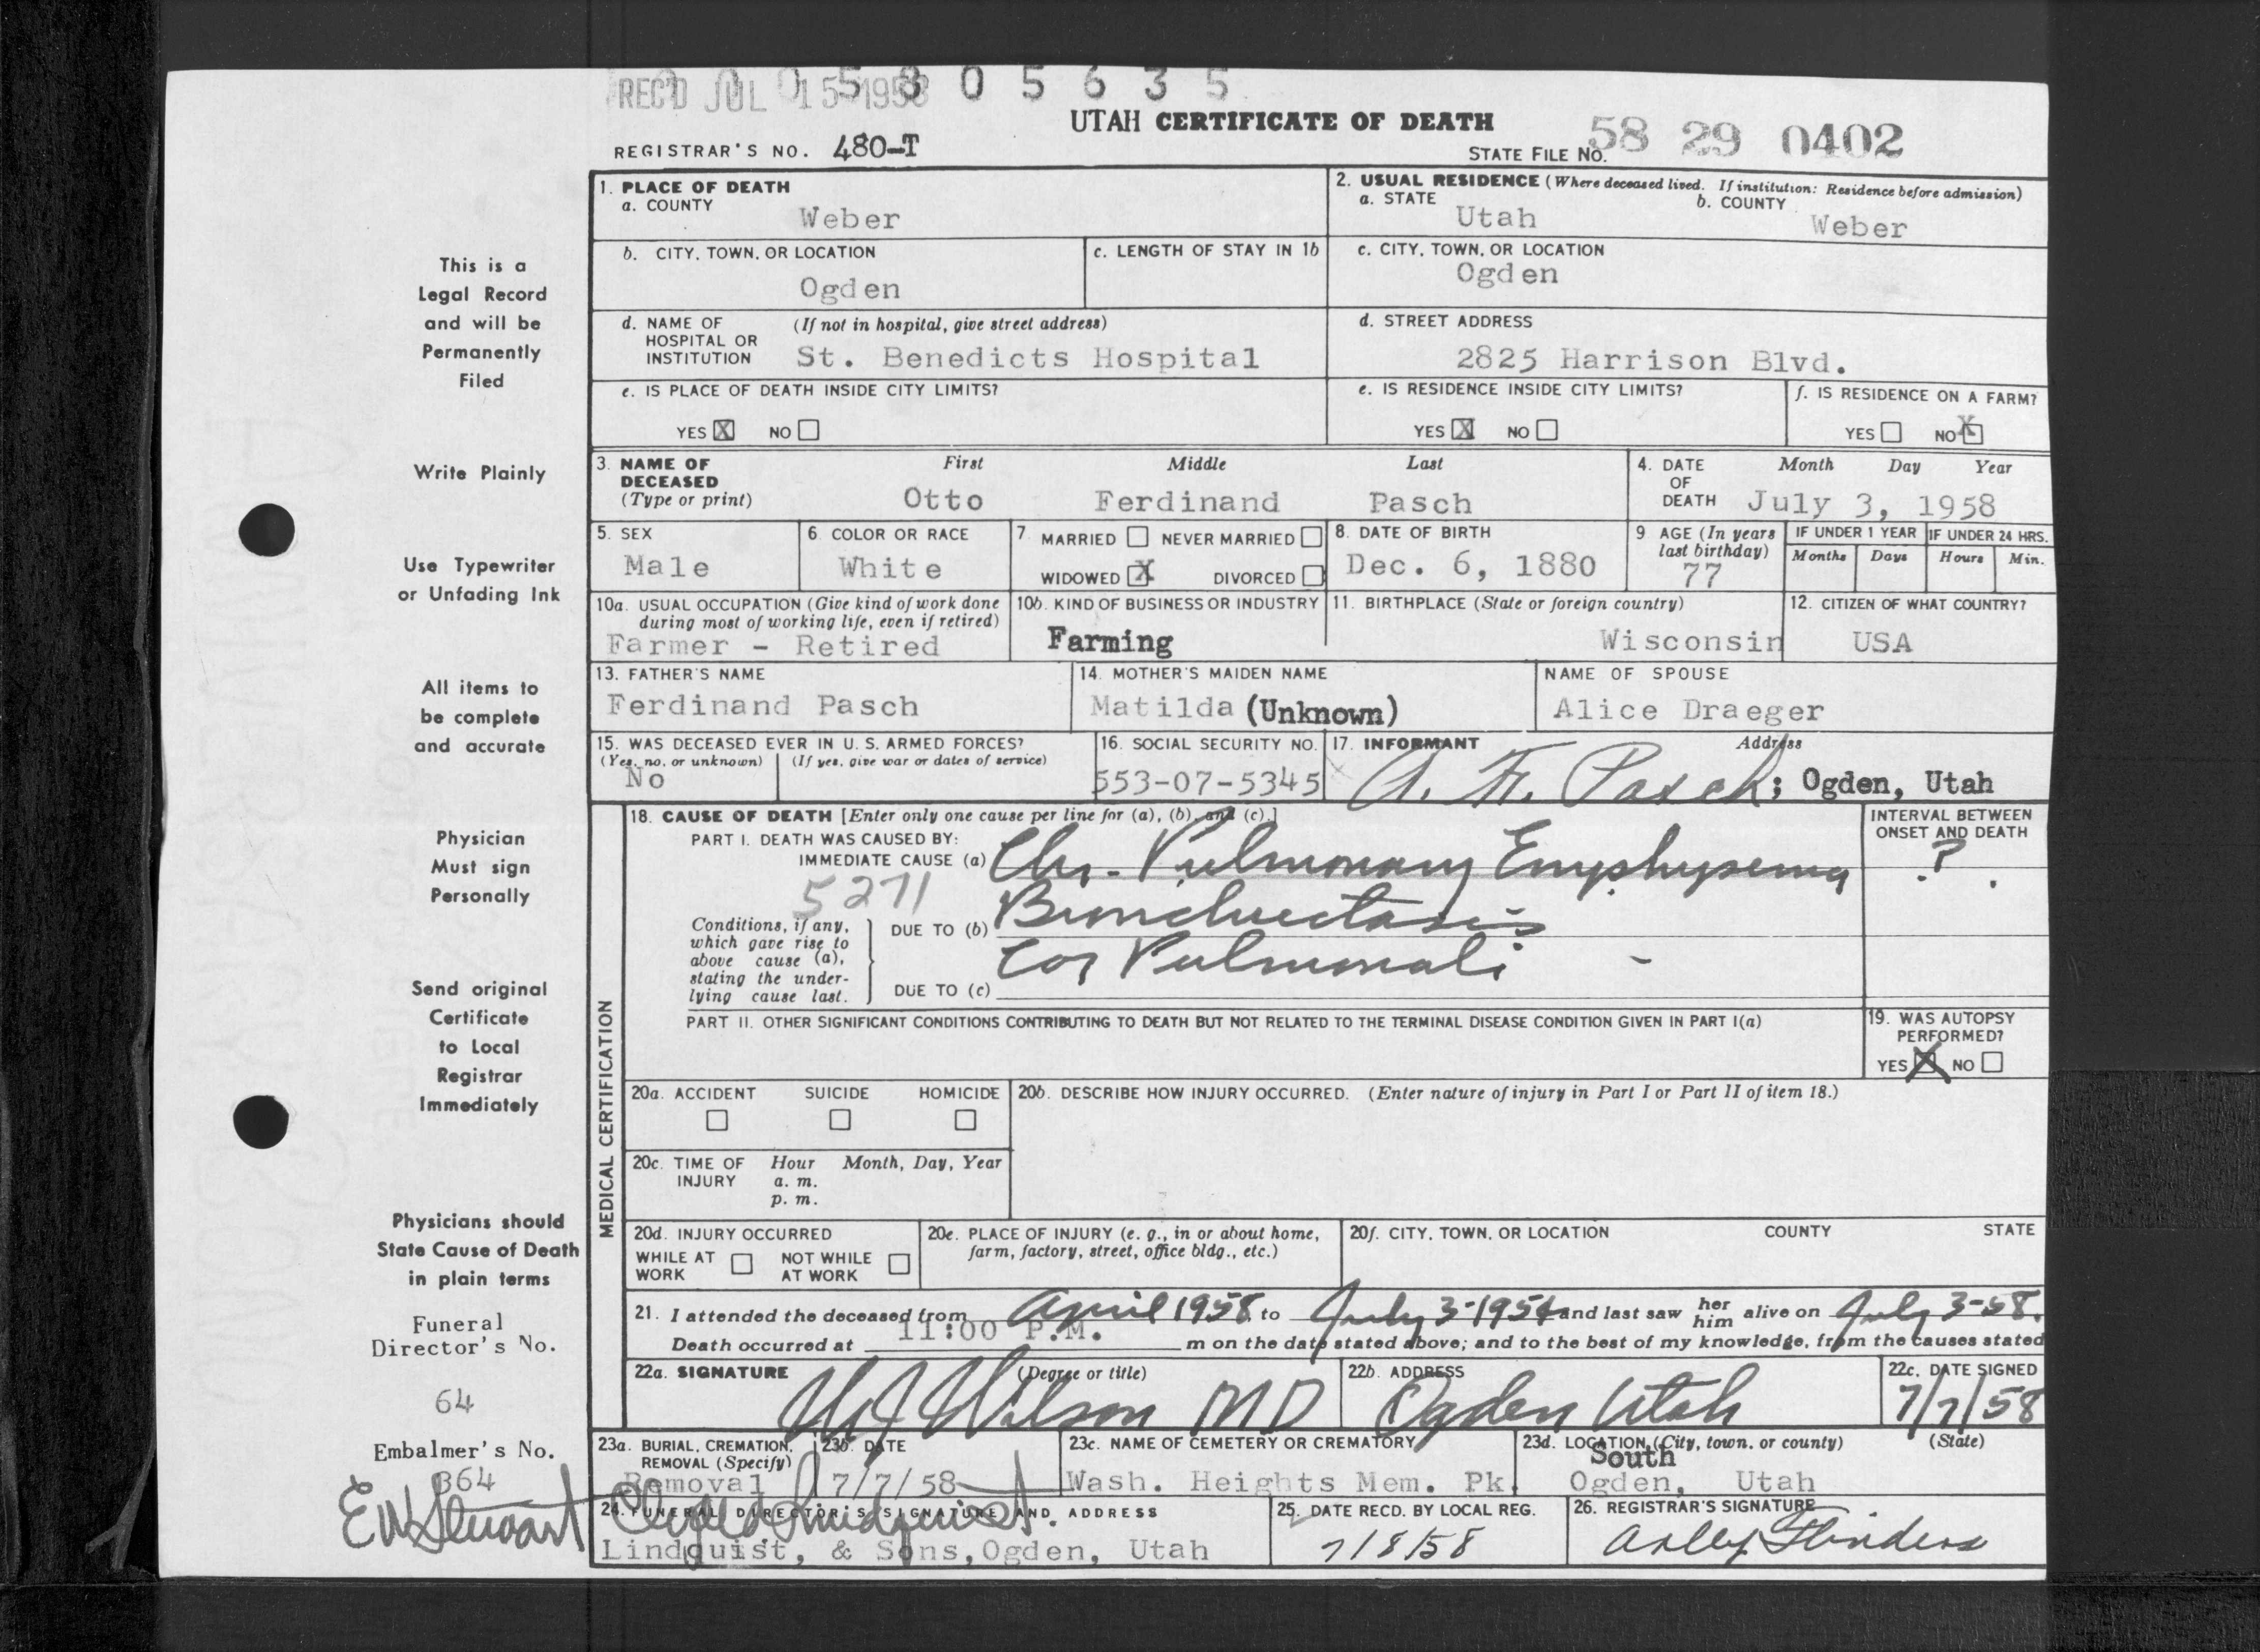 REC'D JUL 15 1958 0 5 8 0 5 6 3 5
UTAH CERTIFICATE OF DEATH
REGISTRAR'S NO. 480-T
STATE FILE NO. 58 29 0402
This is a
Legal Record
and will be
Permanently
Filed
Write Plainly
Use Typewriter
or Unfading Ink
All items to
be complete
and accurate
Physician
Must sign
Personally
Send original
Certificate
to Local
Registrar
Immediately
Physicians should
State Cause of Death
in plain terms
Funeral
Director's No.
64
Embalmer's No.
364
E W Stewart
1. PLACE OF DEATH
a. COUNTY
Weber
2. USUAL RESIDENCE (Where deceased lived. If institution: Residence before admission)
a. STATE
Utah
b. COUNTY
Weber
b. CITY, TOWN, OR LOCATION
Ogden
c. LENGTH OF STAY IN 1b
c. CITY, TOWN, OR LOCATION
Ogden
d. NAME OF HOSPITAL OR INSTITUTION
(If not in hospital, give street address)
St. Benedicts Hospital
d. STREET ADDRESS
2825 Harrison Blvd.
e. IS PLACE OF DEATH INSIDE CITY LIMITS?
YES X NO
e. IS RESIDENCE INSIDE CITY LIMITS?
YES X NO
f. IS RESIDENCE ON A FARM?
YES NO X
3. NAME OF DECEASED
(Type or print)
First Middle Last
Otto Ferdinand Pasch
4. DATE OF DEATH
Month Day Year
July 3, 1958
5. SEX
Male
6. COLOR OR RACE
White
7. MARRIED NEVER MARRIED
WIDOWED X DIVORCED
8. DATE OF BIRTH
Dec. 6, 1880
9. AGE (In years last birthday)
77
IF UNDER 1 YEAR
Months Days
IF UNDER 24 HRS.
Hours Min.
10a. USUAL OCCUPATION (Give kind of work done
during most of working life, even if retired)
Farmer - Retired
10b. KIND OF BUSINESS OR INDUSTRY
Farming
11. BIRTHPLACE (State or foreign country)
Wisconsin
12. CITIZEN OF WHAT COUNTRY?
USA
13. FATHER'S NAME
Ferdinand Pasch
14. MOTHER'S MAIDEN NAME
Matilda (Unknown)
NAME OF SPOUSE
Alice Draeger
15. WAS DECEASED EVER IN U. S. ARMED FORCES?
(Yes, no, or unknown) (If yes, give war or dates of service)
No
16. SOCIAL SECURITY NO.
553-07-5345
17. INFORMANT Address
A. F. Pasch; Ogden, Utah
MEDICAL CERTIFICATION
18. CAUSE OF DEATH [Enter only one cause per line for (a), (b), and (c).]
PART I. DEATH WAS CAUSED BY:
IMMEDIATE CAUSE (a) Chr. Pulmonary Emphysema
5271
INTERVAL BETWEEN
ONSET AND DEATH
?
Conditions, if any,
which gave rise to
above cause (a),
stating the under-
lying cause last.
DUE TO (b) Bronchiectasis
Cor Pulmonali
DUE TO (c)
PART II. OTHER SIGNIFICANT CONDITIONS CONTRIBUTING TO DEATH BUT NOT RELATED TO THE TERMINAL DISEASE CONDITION GIVEN IN PART I(a)
19. WAS AUTOPSY
PERFORMED?
YES X NO
20a. ACCIDENT SUICIDE HOMICIDE
20b. DESCRIBE HOW INJURY OCCURRED. (Enter nature of injury in Part I or Part II of item 18.)
20c. TIME OF INJURY Hour Month, Day, Year
a. m.
p. m.
20d. INJURY OCCURRED
WHILE AT WORK NOT WHILE AT WORK
20e. PLACE OF INJURY (e. g., in or about home,
farm, factory, street, office bldg., etc.)
20f. CITY, TOWN, OR LOCATION COUNTY STATE
21. I attended the deceased from April 1958 to July 3-1958 and last saw her him alive on July 3-58.
Death occurred at 11:00 P.M. m on the date stated above; and to the best of my knowledge, from the causes stated
22a. SIGNATURE (Degree or title)
Wilson MD
22b. ADDRESS
Ogden Utah
22c. DATE SIGNED
7/7/58
23a. BURIAL, CREMATION,
REMOVAL (Specify)
Removal
23b. DATE
7/7/58
23c. NAME OF CEMETERY OR CREMATORY
Wash. Heights Mem. Pk.
23d. LOCATION (City, town, or county) (State)
South
Ogden, Utah
24. FUNERAL DIRECTOR'S SIGNATURE AND ADDRESS
Lindquist, & Sons, Ogden, Utah
25. DATE RECD. BY LOCAL REG.
7/8/58
26. REGISTRAR'S SIGNATURE